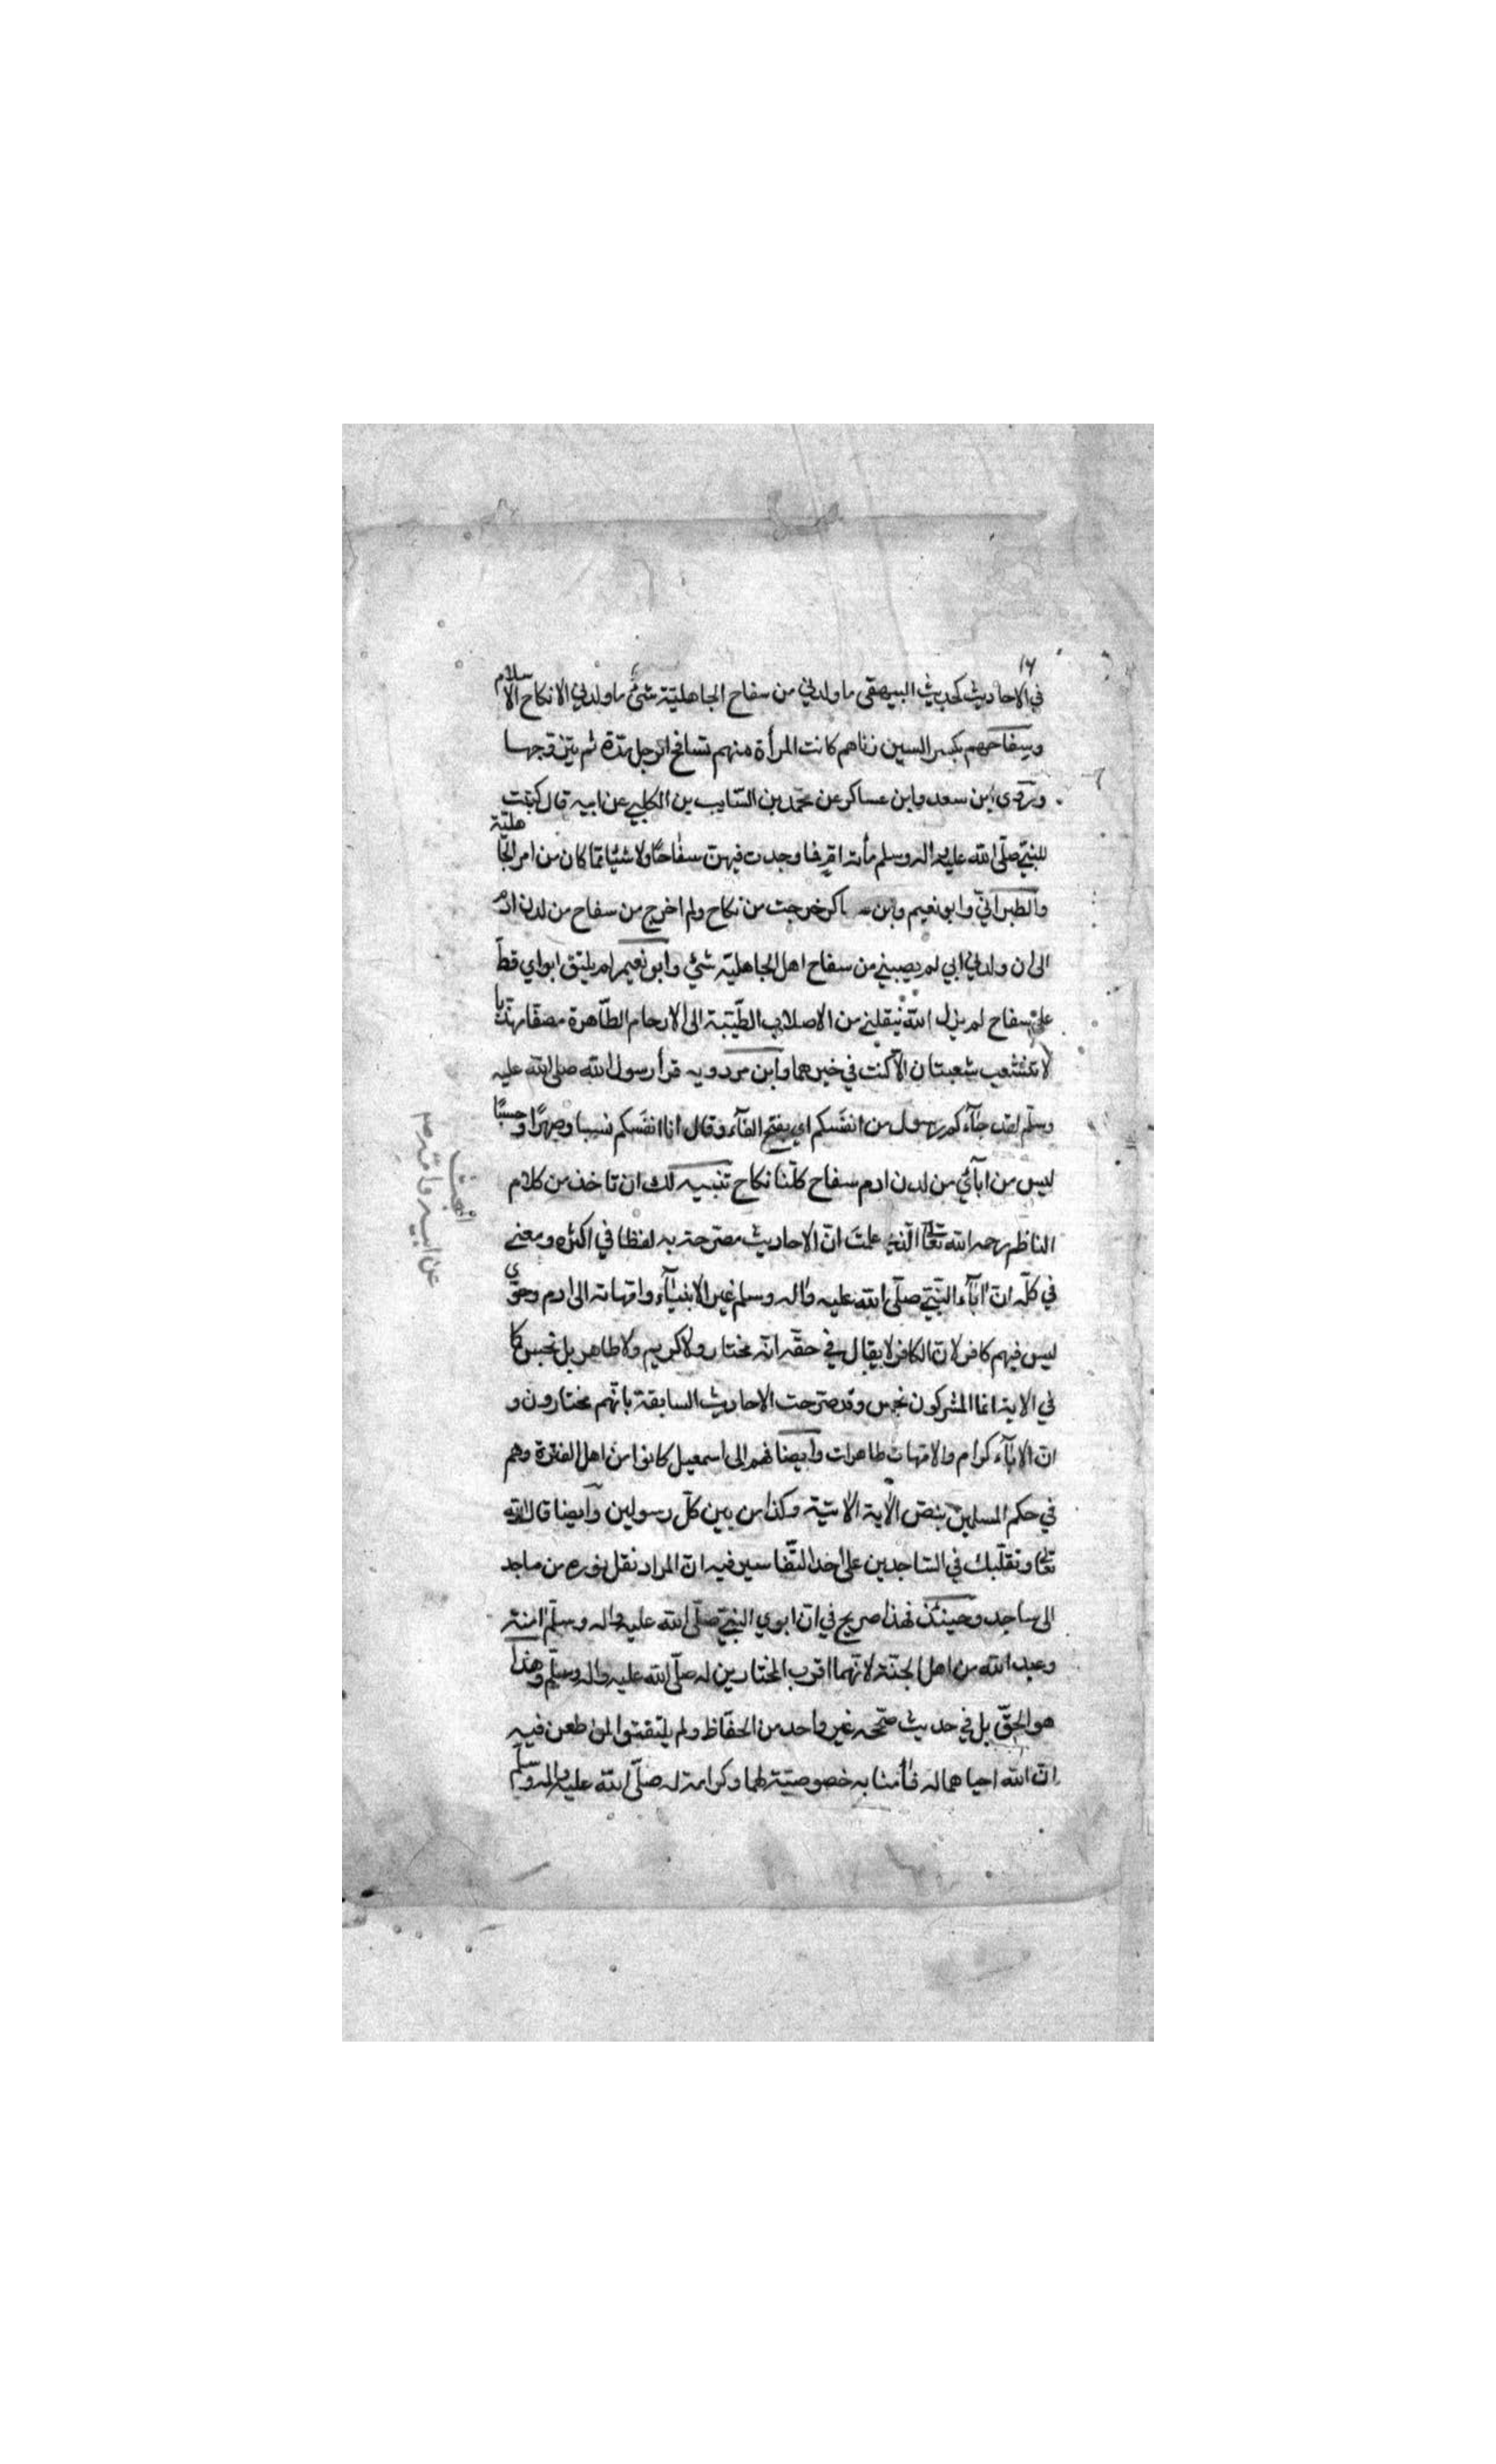 ١٦
في الاحاديث كحديث البيهقي ما ولدني من سفاح الجاهليّة شيٌ ما ولدني الا نكاح الاسلام
وسِفاحهم بكسر السين زناهم كانت المرأة منهم تسافح الرجل مدّة ثم يتزوجها
وروى ابن سعد وابن عساكر عن محمّد بن السّايب بن الكلبي عن ابيه قال كتبت
للنبيّ صلّى الله عليه واله وسلم مأة امّ فما وجدت فيهنّ سفاحًا ولا شيئا ممّا كان من امر الجاهليّة
والطبرانيّ وابو نعيم وابن ـساكر خرجت من نكاح ولم اخرج من سفاح من لدن ادم
الى ان ولدني ابي لم يصبني من سفاح اهل الجاهليّة شيٌ وابو نعيم لم يلتق ابواي قطّ
على سفاح لم يزل الله ينقلني من الاصلاب الطّيّبة الى الارحام الطّاهرة مصفّا مهذّبا
لا تتشعب شعبتان الّا كنت في خيرهما وابن مردويه قرأ رسول الله صلى الله عليه
وسلّم لقد جآءكم رسول من انفَسكم اي بفتح الفآء وقال انا انفَسكم نسبا وصهرًا وحسبًا
ليس من ابآئي من لدن ادم سفاح كلّنا نكاح تنبيه لك ان تاخذ من كلام
الناظم رحمه الله تعالى الّذي علمتَ انّ الاحاديث مصرّحة به لفظا في اكثره ومعنى
في كلّه انّ اٰبآء النّبيّ صلّى الله عليه واٰله وسلم غير الانبيآء وامّهاته الى ادم وحوّى
ليس فيهم كافر لانّ الكافر لا يقال في حقّه انّه مختار ولا كريم ولا طاهر بل نجس كما
في الاية انما المشركون نجس وقد صرّحت الاحاديث السابقة بانّهم مختارون و
انّ الابآء كرام والامّهات طاهرات وايضا فهم الى اسمعيل كانوا من اهل الفترة وهم
في حكم المسلمين بنصّ الاٰية الاٰتية وكذا من بين كلّ رسولين وايضا قال الله
تعالى وتقلّبك في السّاجدين على احد التّفاسير فيه انّ المراد نقل نوره من ساجد
الى ساجد وحينئذ فهذا صريح في انّ ابوي النبيّ صلّى الله عليه واله وسلّم اٰمنة
وعبد الله من اهل الجنّة لانّهما اقرب المختارين له صلّى الله عليه واله وسلّم وهذا
هو الحقّ بل في حديث صحّحه غير واحد من الحفّاظ ولم يلتفتوا لمن طعن فيه
انّ الله احياهما له فاٰمنا به خصوصيّة لهما وكرامة له صلّى الله عليه واله وسلّم
عن ابيه وامّه